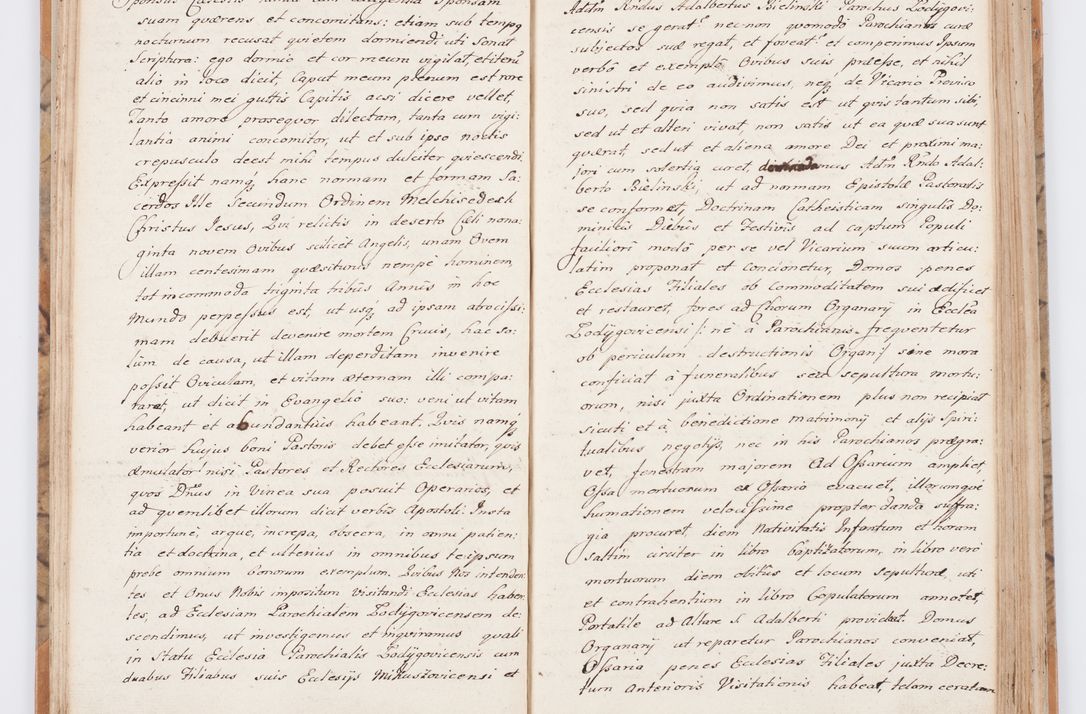 Sponsus Caelestis
suam quærens et concomitans: etiam sub tempq
nocturnum recusat quietem dormiendi uti Sonat
Scriptura: ego dormio et cor meum vigilat, et iteru
alio in loco dicit, Caput meum plenum est rore
et cincinni mei guttis Capitis, acsi dicere vellet,
Tanto amore prosequor dilectam, tanta cum vigi:
lantia animi concomitor, ut et sub ipso noctis
crepusculo deest mihi tempus dulciter quiescendi.
Expressit namq; hanc normam et formam Sa:
cerdos Ille Secundum Ordinem Melchisedech
Christus Jesus, Qui relictis in deserto Cæli nona:
ginta novem Ovibus scilicet Angelis, unam Ovem
illam centesimam quæsiturus nempè hominem,
tot incommoda triginta tribus Annis in hoc
Mundo perpessus est, ut usq; ad ipsam atrocissi:
mam debuerit devenire mortem Crucis, hac so:
lùm de causa, ut illam deperditam invenire
possit Oviculam, et vitam æternam illi compa:
raret, ut dicit in Evangelio suo: veni ut vitam
habeant et abundantius habeant. Quis namq;
verior hujus boni Pastoris debet esse imitator, quis
æmulator nisi Pastores et Rectores Ecclesiarum,
quos Dnus in Vinea sua posuit Operarios, et
ad quemlibet illorum dicit verbis Apostoli: Insta
importunè, argue, increpa, obsecra, in omni patien:
tia et doctrina, et ulterius in omnibus te ipsum
probe omnium bonorum exemplum. Quibus Nos intenden:
tes et Onus Nobis impositum Visitandi Ecclesias haben:
tes, ad Ecclesiam Parochialem Lodygovicensem de:
scendimus, ut investigemus et inquiramus quali
in Statu Ecclesia Parochialis Lodygovicensis cum
duabus Filiabus suis Ecclesijs Mikuszovicensi et
Adtm Rndus Adalbertus Bielinski Parochus Lodygovi:
censis se gerat necnon quomodo Parochiam curæ
subjectos suæ regat, et foveat et comperimus Ipsum
verbo et exemplo Ovibus suis præesse, et nihil
sinistri de eo audivimus, neq; de Vicario Provico
suo, sed quia non satis est ut quis tantum sibi,
sed ut et alteri vivat, non satis ut ea quæ sua sunt
quærat, sed ut et aliena amore Dei et proximi ma:
jori cum solertia curet, Adtm Rndo Adal:
berto Bielinski; ut ad normam Epistolæ Pastoralis
se conformet, Doctrinam Catheisticam singulis Do:
minicis Diebus et Festivis ad captum Populi
faciliori modo per se vel Vicarium suum articu:
latim proponat et concionetur, Domos penes
Ecclesias Filiales ob commoditatem sui ædificet
et restauret, fores ad Chorum Organarij in Ecclea
Lodygovicensi /: nè à Parochianis frequentetur
ob periculum destructionis Organi :/ sine mora
conficiat à funeralibus seu sepultura mortu:
orum, nisi juxta Ordinationem plus non recipiat
sicuti et à benedictione matrimonij et alijs Spiri:
tualibus negotijs, nec in his Parochianos prægra:
vet, fenestram majorem ad Ossarium ampliet
Ossa mortuorum ex Ossario evacuet, illorumque
humationem velocissime propter danda suffra:
gia procuret, diem Nativitatis Infantum et horam
saltim circiter in libro baptizatorum, in libro verò
mortuorum diem obitûs et locum sepulturæ, uti
et contrahentium in libro Copulatorum annotet,
Portatile ad Altare S. Adalberti provideat. Domus
Organarij ut reparetur Parochianos conveniat,
Ossaria penes Ecclesias Filiales juxta Decre:
tum Anterioris Visitationis habeat, telam ceratam